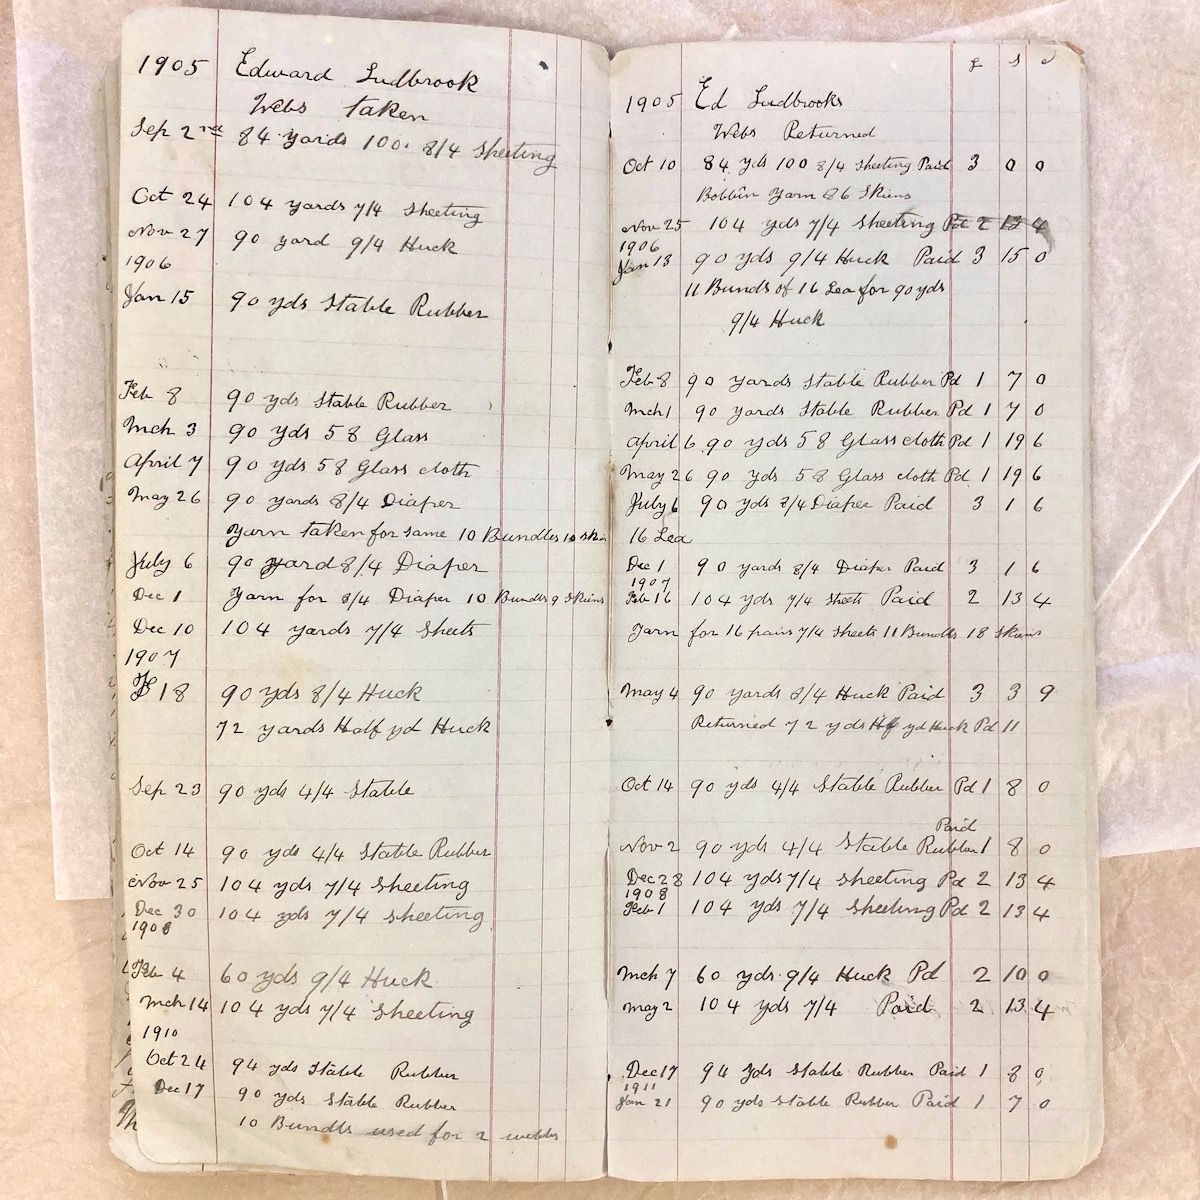 1905 Edward Ludbrook
Webs taken
Sep 2nd 84 yards 100. 8/4 Sheeting
Oct 24 104 yards 7/4 Sheeting
Nov 27 90 yard 9/4 Huck
1906
Jan 15 90 yds Stable Rubber
Feb 8 90 yds Stable Rubber
Mch 3 90 yds 58 Glass
April 7 90 yds 58 Glass cloth
May 26 90 yards 8/4 Diaper
Yarn taken for same 10 Bundles 10 Skin
July 6 90 yard 8/4 Diaper
Dec 1 Yarn for 8/4 Diaper 10 Bundls 9 Skeins
Dec 10 104 yards 7/4 Sheets
1907
F 18 90 yds 8/4 Huck
72 yards Half yd Huck
Sep 23 90 yds 4/4 Stable
Oct 14 90 yds 4/4 Stable Rubber
Nov 25 104 yds 7/4 Sheeting
Dec 30 104 yds 7/4 Sheeting
1908
Feb 4 60 yds 9/4 Huck
Mch 14 104 yds 7/4 Sheeting
1910
Oct 24 94 yds Stable Rubber
Dec 17 90 yds Stable Rubber
10 Bundls used for 2 webbs
£ S d
1905 Ed Ludbrooks
Webs Returned
Oct 10 84 yds 100 8/4 Sheeting Paid 3 0 0
Bobbin Yarn 86 Skins
Nov 25 104 yds 7/4 Sheeting Pd 2 13 4
1906
Jan 13 90 yds 9/4 Huck Paid 3 15 0
11 Bunds of 16 Lea for 90 yds
9/4 Huck
Feb 8 90 yards Stable Rubber Pd 1 7 0
Mch 1 90 yards Stable Rubber Pd 1 7 0
April 6 90 yds 58 Glass cloth Pd 1 19 6
May 26 90 yds 58 Glass cloth Pd 1 19 6
July 6 90 yds 8/4 Diaper Paid 3 1 6
16 Lea
Dec 1 90 yards 8/4 Diaper Paid 3 1 6
1907
Feb 16 104 yds 7/4 Sheets Paid 2 13 4
Yarn for 16 pairs 7/4 Sheets 11 Bundls 18 Skeins
May 4 90 yards 8/4 Huck Paid 3 3 9
Returned 72 yds Hf yd Huck Pd 11
Oct 14 90 yds 4/4 Stable Rubber Pd 1 8 0
Paid
Nov 2 90 yds 4/4 Stable Rubber 1 8 0
Dec 28 104 yds 7/4 Sheeting Pd 2 13 4
1908
Feb 1 104 yds 7/4 Sheeting Pd 2 13 4
Mch 7 60 yds 9/4 Huck Pd 2 10 0
May 2 104 yds 7/4 Paid 2 13 4
Dec 17 94 yds Stable Rubber Paid 1 8 0
1911
Jan 21 90 yds Stable Rubber Paid 1 7 0